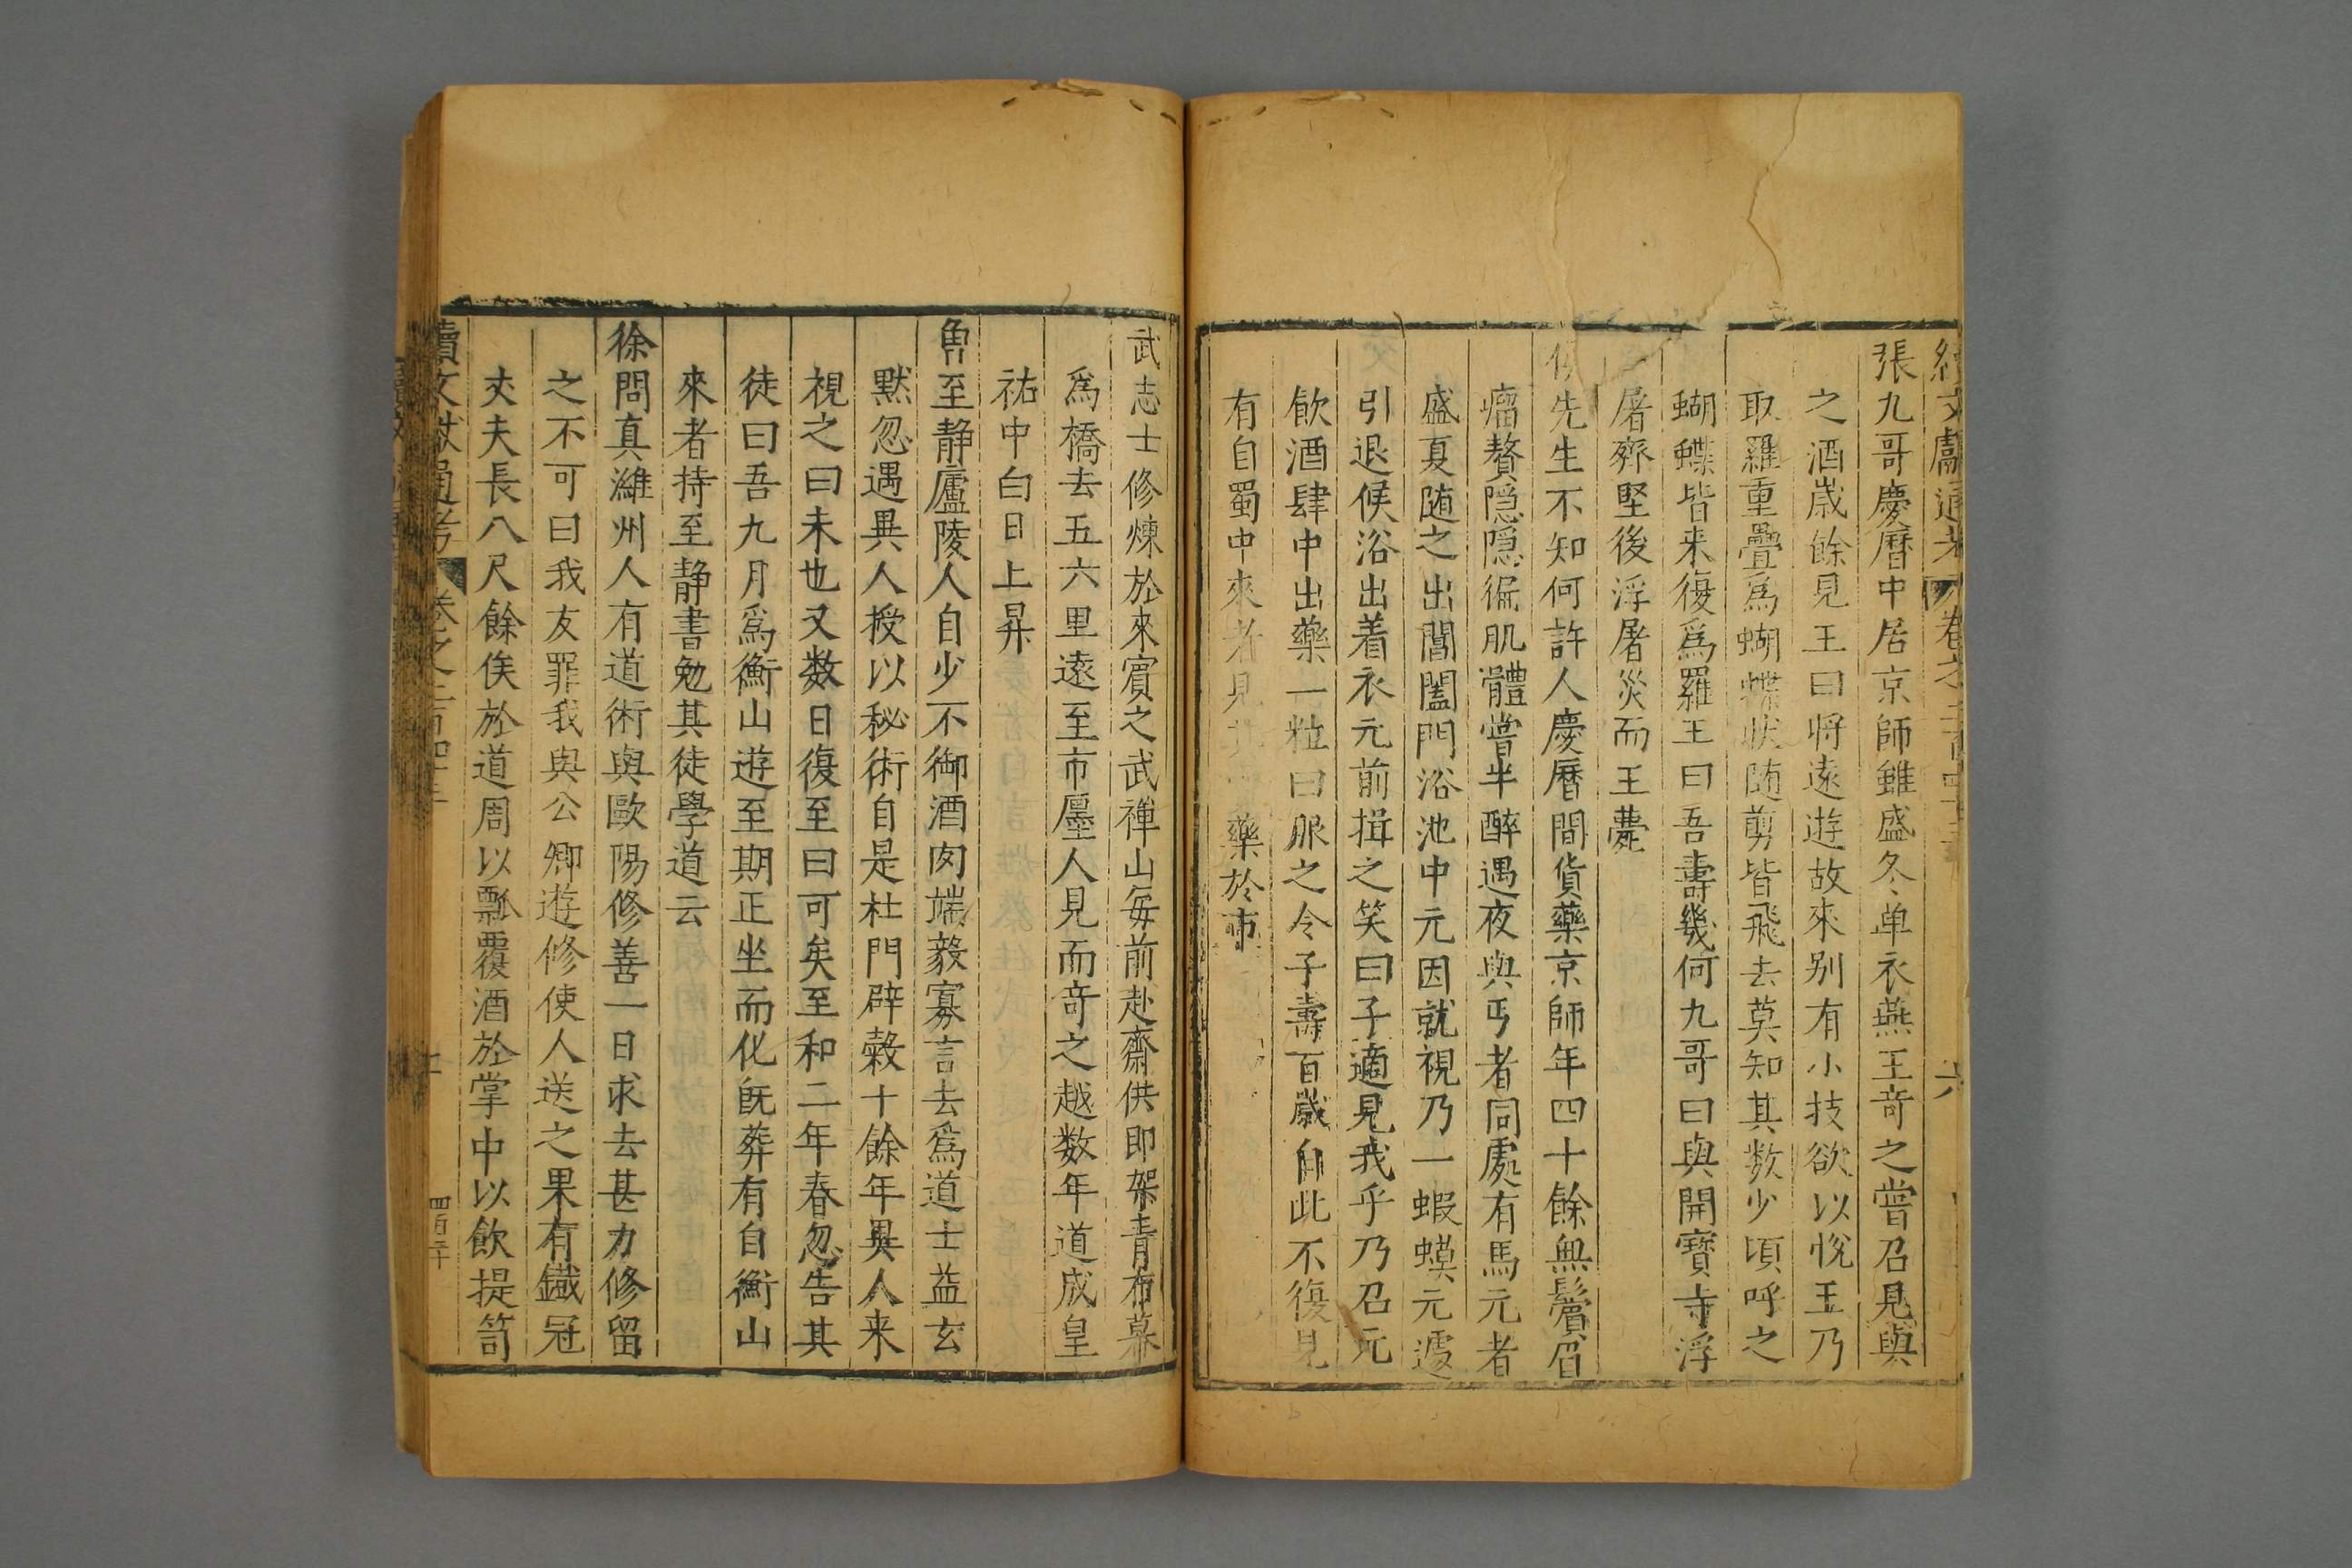 續文獻通考 卷之二百四十三 六
張九哥慶曆中居京師雖盛冬单衣燕王竒之嘗召見與
之酒歲餘見王曰将遠遊故來别有小技欲以悅王乃
取羅重疊爲蝴蝶狀随剪皆飛去莫知其数少頃呼之
蝴蝶皆来復爲羅王曰吾壽幾何九哥曰與開寶寺浮
屠齊堅後浮屠災而王薨
侯先生不知何許人慶曆間貨藥京師年四十餘無鬚眉
瘤贅隠隠徧肌體嘗半醉遇夜與丐者同處有馬元者
盛夏随之出閶闔門浴池中元因就視乃一蝦蟆元遽
引退候浴出着衣元前揖之笑曰子適見我乎乃召元
飲酒肆中出藥一粒曰服之令子壽百歲自此不復見
有自蜀中來者見 藥於市
武志士修煉於來賓之武禪山每前赴齋供即架青布幕
爲橋去五六里遠至市廛人見而竒之越数年道成皇
祐中白日上昇
魯至静廬陵人自少不御酒肉端毅寡言去爲道士益玄
黙忽遇異人授以秘術自是杜門辟榖十餘年異人来
視之曰未也又数日復至曰可矣至和二年春忽告其
徒曰吾九月爲衡山遊至期正坐而化旣葬有自衡山
來者持至静書勉其徒學道云
徐問真濰州人有道術與歐陽修善一日求去甚力修留
之不可曰我友罪我與公卿遊修使人送之果有鐵冠
丈夫長八尺餘俟於道周以瓢覆酒於掌中以飲提笥
續文獻通考 卷之二百四十三 四百二十